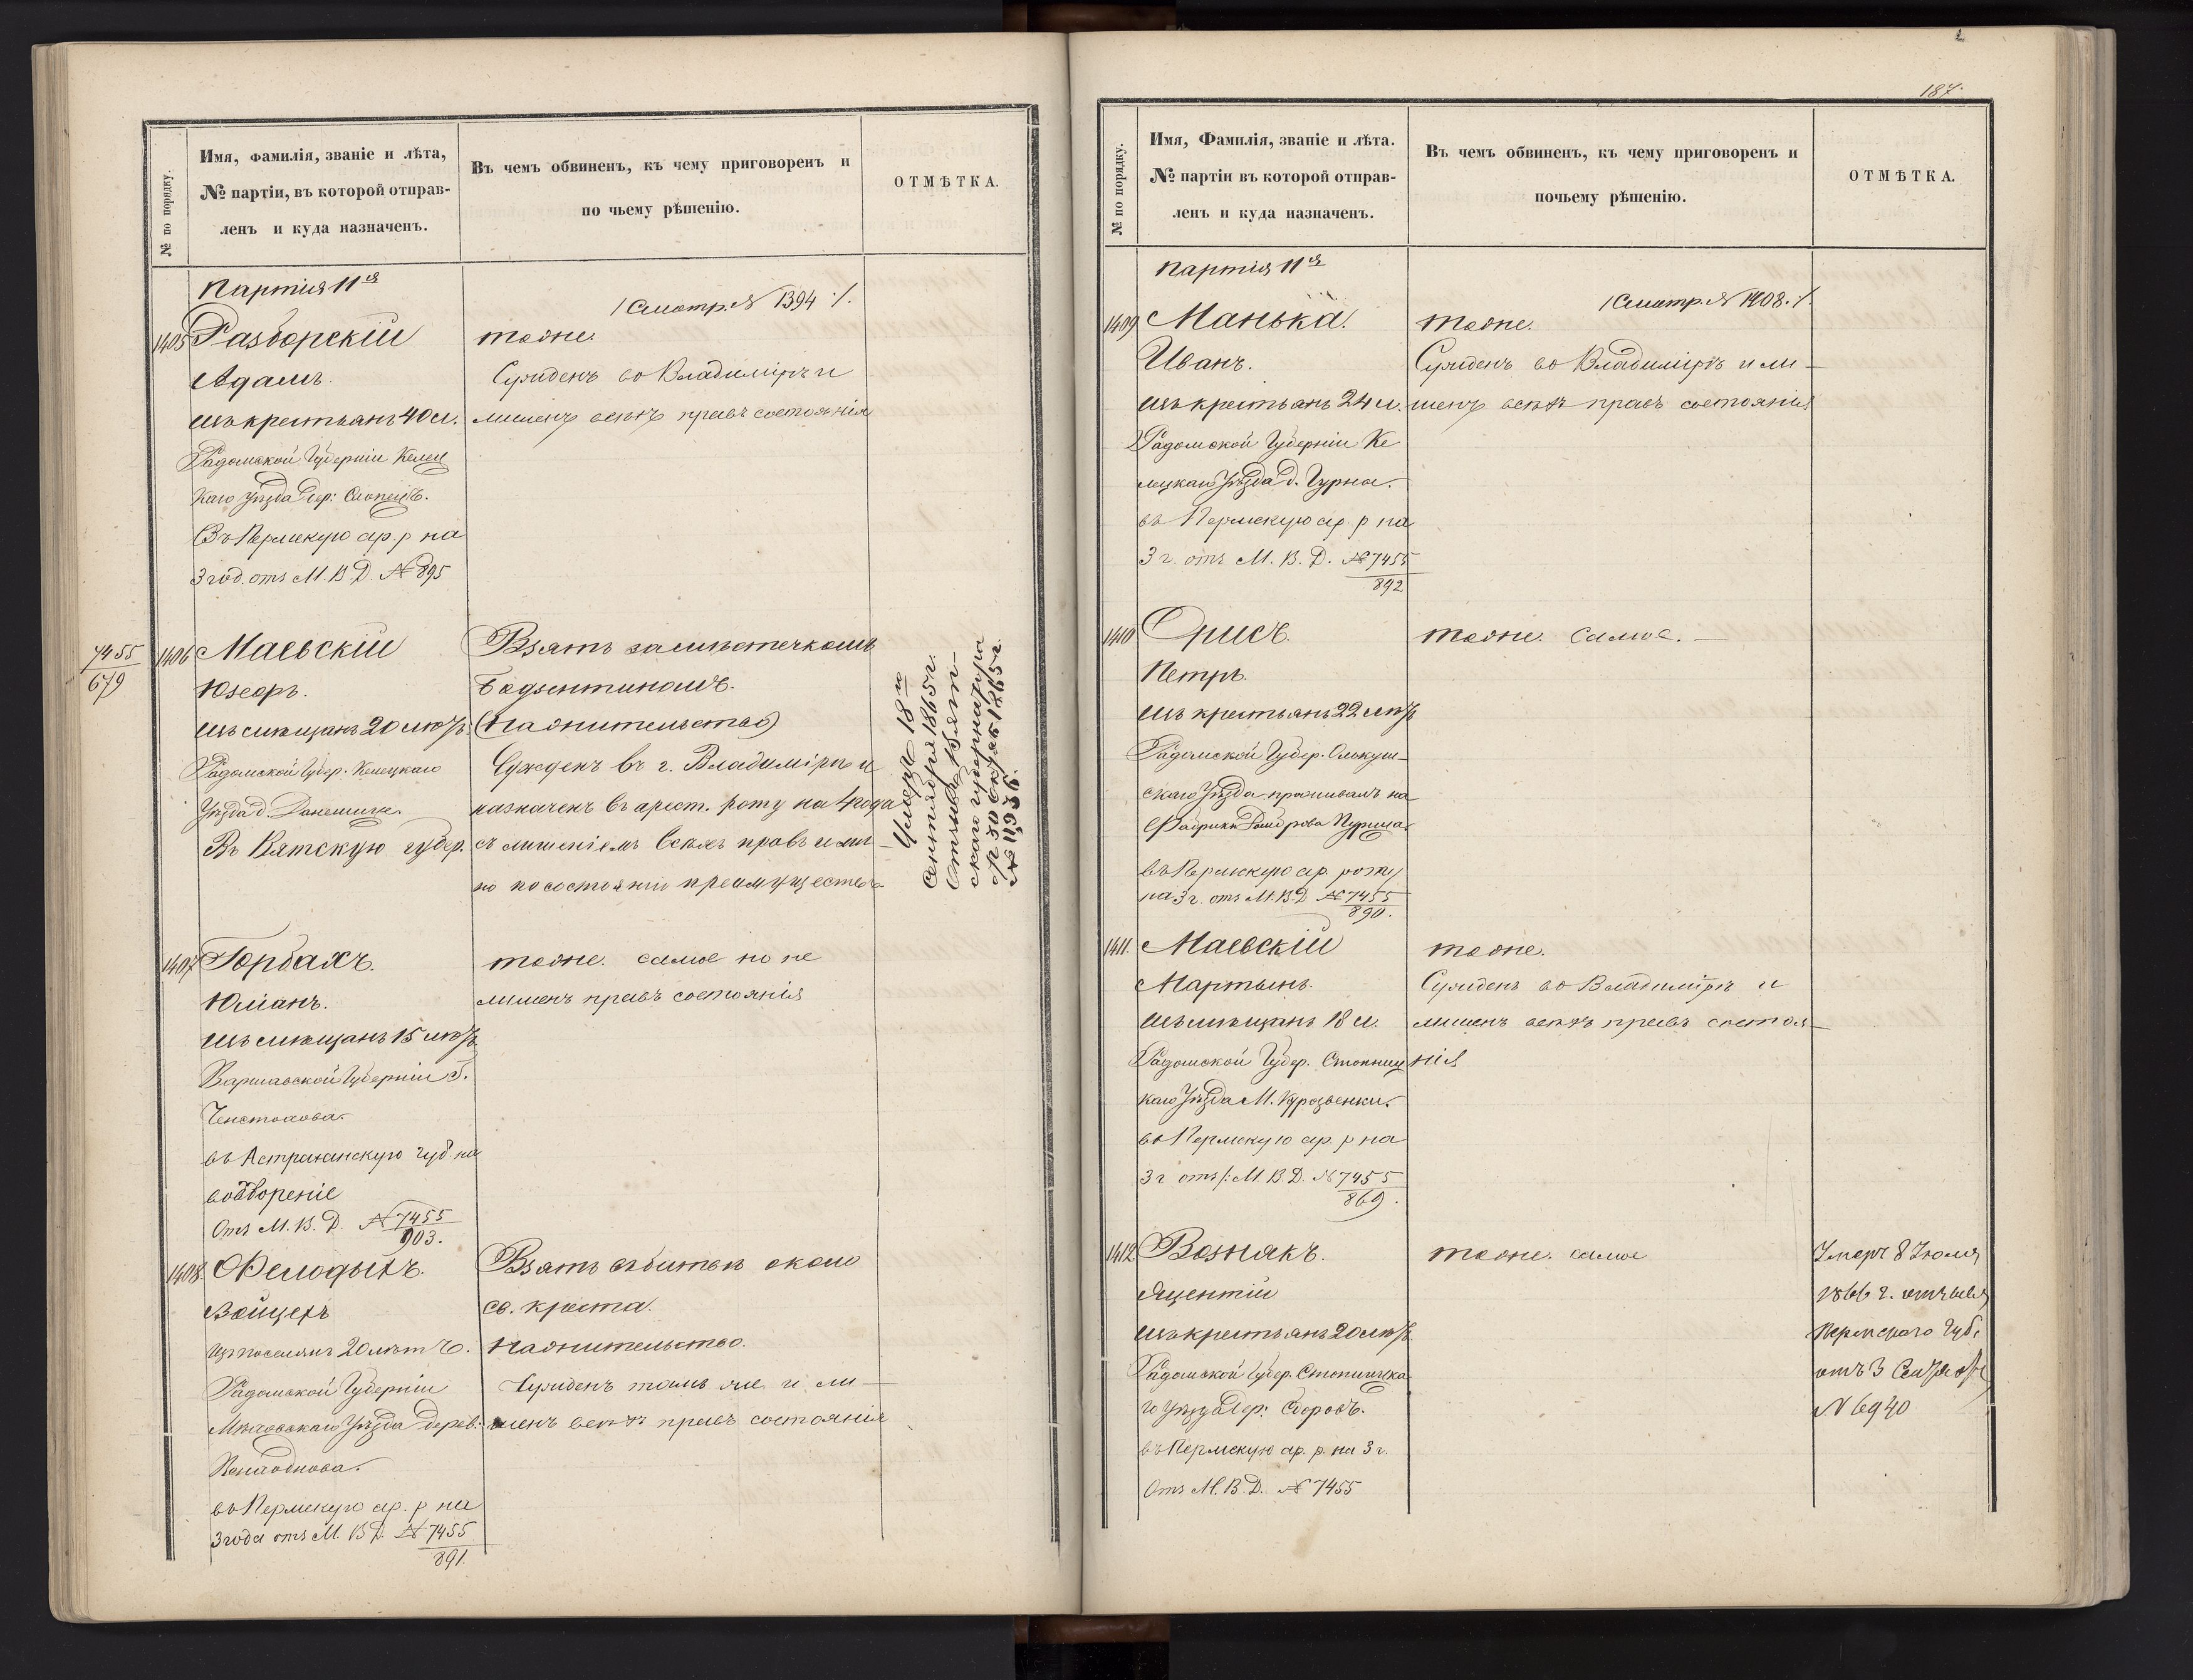 № по порядку.
Имя, фамилія, званіе и лѣта,
№ партіи, въ которой отправ-
ленъ и куда назначенъ.
Въ чемъ обвиненъ, къ чему приговоренъ и
по чьему рѣшенію.
ОТМѢТКА.
Партія 11я
/Смотр. № 1394 ./.
1405 Разборскій
тоже.
Адамъ.
Сужденъ во Владимірѣ и
изъ крестьянъ 40 л.
лишенъ всѣхъ правъ состоянія
Радомской Губерніи Келец
каго уѣзда дер:
Въ Пермскую ар. р на
3 год. отъ М. В. Д. № 895
7455
679
1406 Маевскій
Взятъ за мѣстечкомъ
Юзефъ.
Бодзентиномъ.
изъ мѣщанъ 20 лѣтъ
(На жительство)
Радомской Губер. Келецкаго
Сужденъ въ г. Владимірѣ и
Уѣзда д.
назначенъ въ арест. роту на 4 года
Въ Вятскую губер.
съ лишеніемъ всѣхъ правъ и ли-
но по состоянію преимуществъ
Умеръ 18го
Сентября 1865 г.
Отзывъ Вят-
скаго губернатора
от 30 Октяб 1865 г.
№ 11936.
1407 Горбахъ.
тоже. самое но не
Юліанъ.
лишенъ правъ состоянія
изъ мѣщанъ 15 лѣтъ
Варшавской Губерніи г.
Ченстохова.
въ Астраханскую губ. на
водвореніе
Отъ М. В. Д. № 7455
903.
1408
Взятъ въ битвѣ около
Войцехъ
св. креста.
Изъ поселянъ 20 лѣтъ
На жительство.
Радомской Губерніи
Сужденъ тамъ же и ли-
Мѣховскаго Уѣзда дерев:
шенъ всѣхъ правъ состоянія
въ Пермскую ар. р на
3 года отъ М. В. Д. № 7455
891.
187.
№ по порядку.
Имя, Фамилія, званіе и лѣта.
№ партіи въ которой отправ-
ленъ и куда назначенъ.
Въ чемъ обвиненъ, къ чему приговоренъ и
почьему рѣшенію.
ОТМѢТКА.
Партія 11я
/Смотр. № 1408. /.
1409 Манька.
тоже.
Иванъ.
Сужденъ во Владимірѣ и ли-
изъ крестьянъ 24 л.
шенъ всѣхъ правъ состоянія
Радомской Губерніи Ке
лецкаго Уѣзда д. Гурна.
въ Пермскую ар. р на
3 г. отъ М. В. Д. № 7455
892
1410 Орисъ.
тоже. самое.
Петръ.
изъ крестьянъ 22 лѣтъ
Радомской Губер. Олькуш-
скаго Уѣзда, проживалъ на
Фабрики
въ Пермскую ар. роту
на 3 г. отъ М. В. Д № 7455
890.
1411. Маевскій
тоже.
Мартынъ.
Сужденъ во Владимірѣ и
изъ мѣщанъ 18 л.
лишенъ всѣхъ правъ состоя-
Радомской Губер. Стопниц
нія
каго Уѣзда М. Курозвенки.
въ Пермскую ар. р на
3 г отъ /: М. В. Д. № 7455
869.
1412 Вознякъ.
тоже. самое
Яцентій
изъ крестьянъ 20 лѣтъ
Радомской Губер. Стопницка
го уѣзда дер:
въ Пермскую ар. р. на 3 г.
Отъ М. В. Д. № 7455
Умеръ 8 Іюля
1866 г. отзывъ
Пермскаго Губ.
отъ 3 Сентября
№ 6940